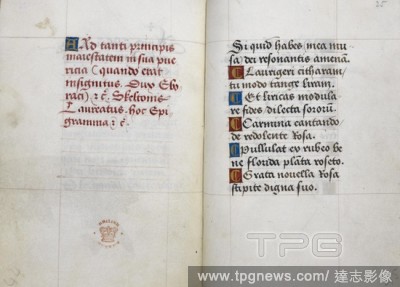 Ad tanti principis
maiestatem in sua pue
ricia / quando erat
insignitus. Dux Ebo
raci / ⁊ c̄. Skeltonis
Laureatus. hoc Epi
gramma ⁊ c̄
25
Si quid habes mea mu
sa dei resonantis amenā.
Laurigeri citharam /
tu modo tange liram.
Et liricas modula
re fides dilecta sororū
Carmina cantando
de redolente Rosa.
Pullulat ex rubeo be
ne florida plāta roseto.
Grata nouella Rosa
stipite digna suo.
TPG
www.tpgnews.com / 達志影像